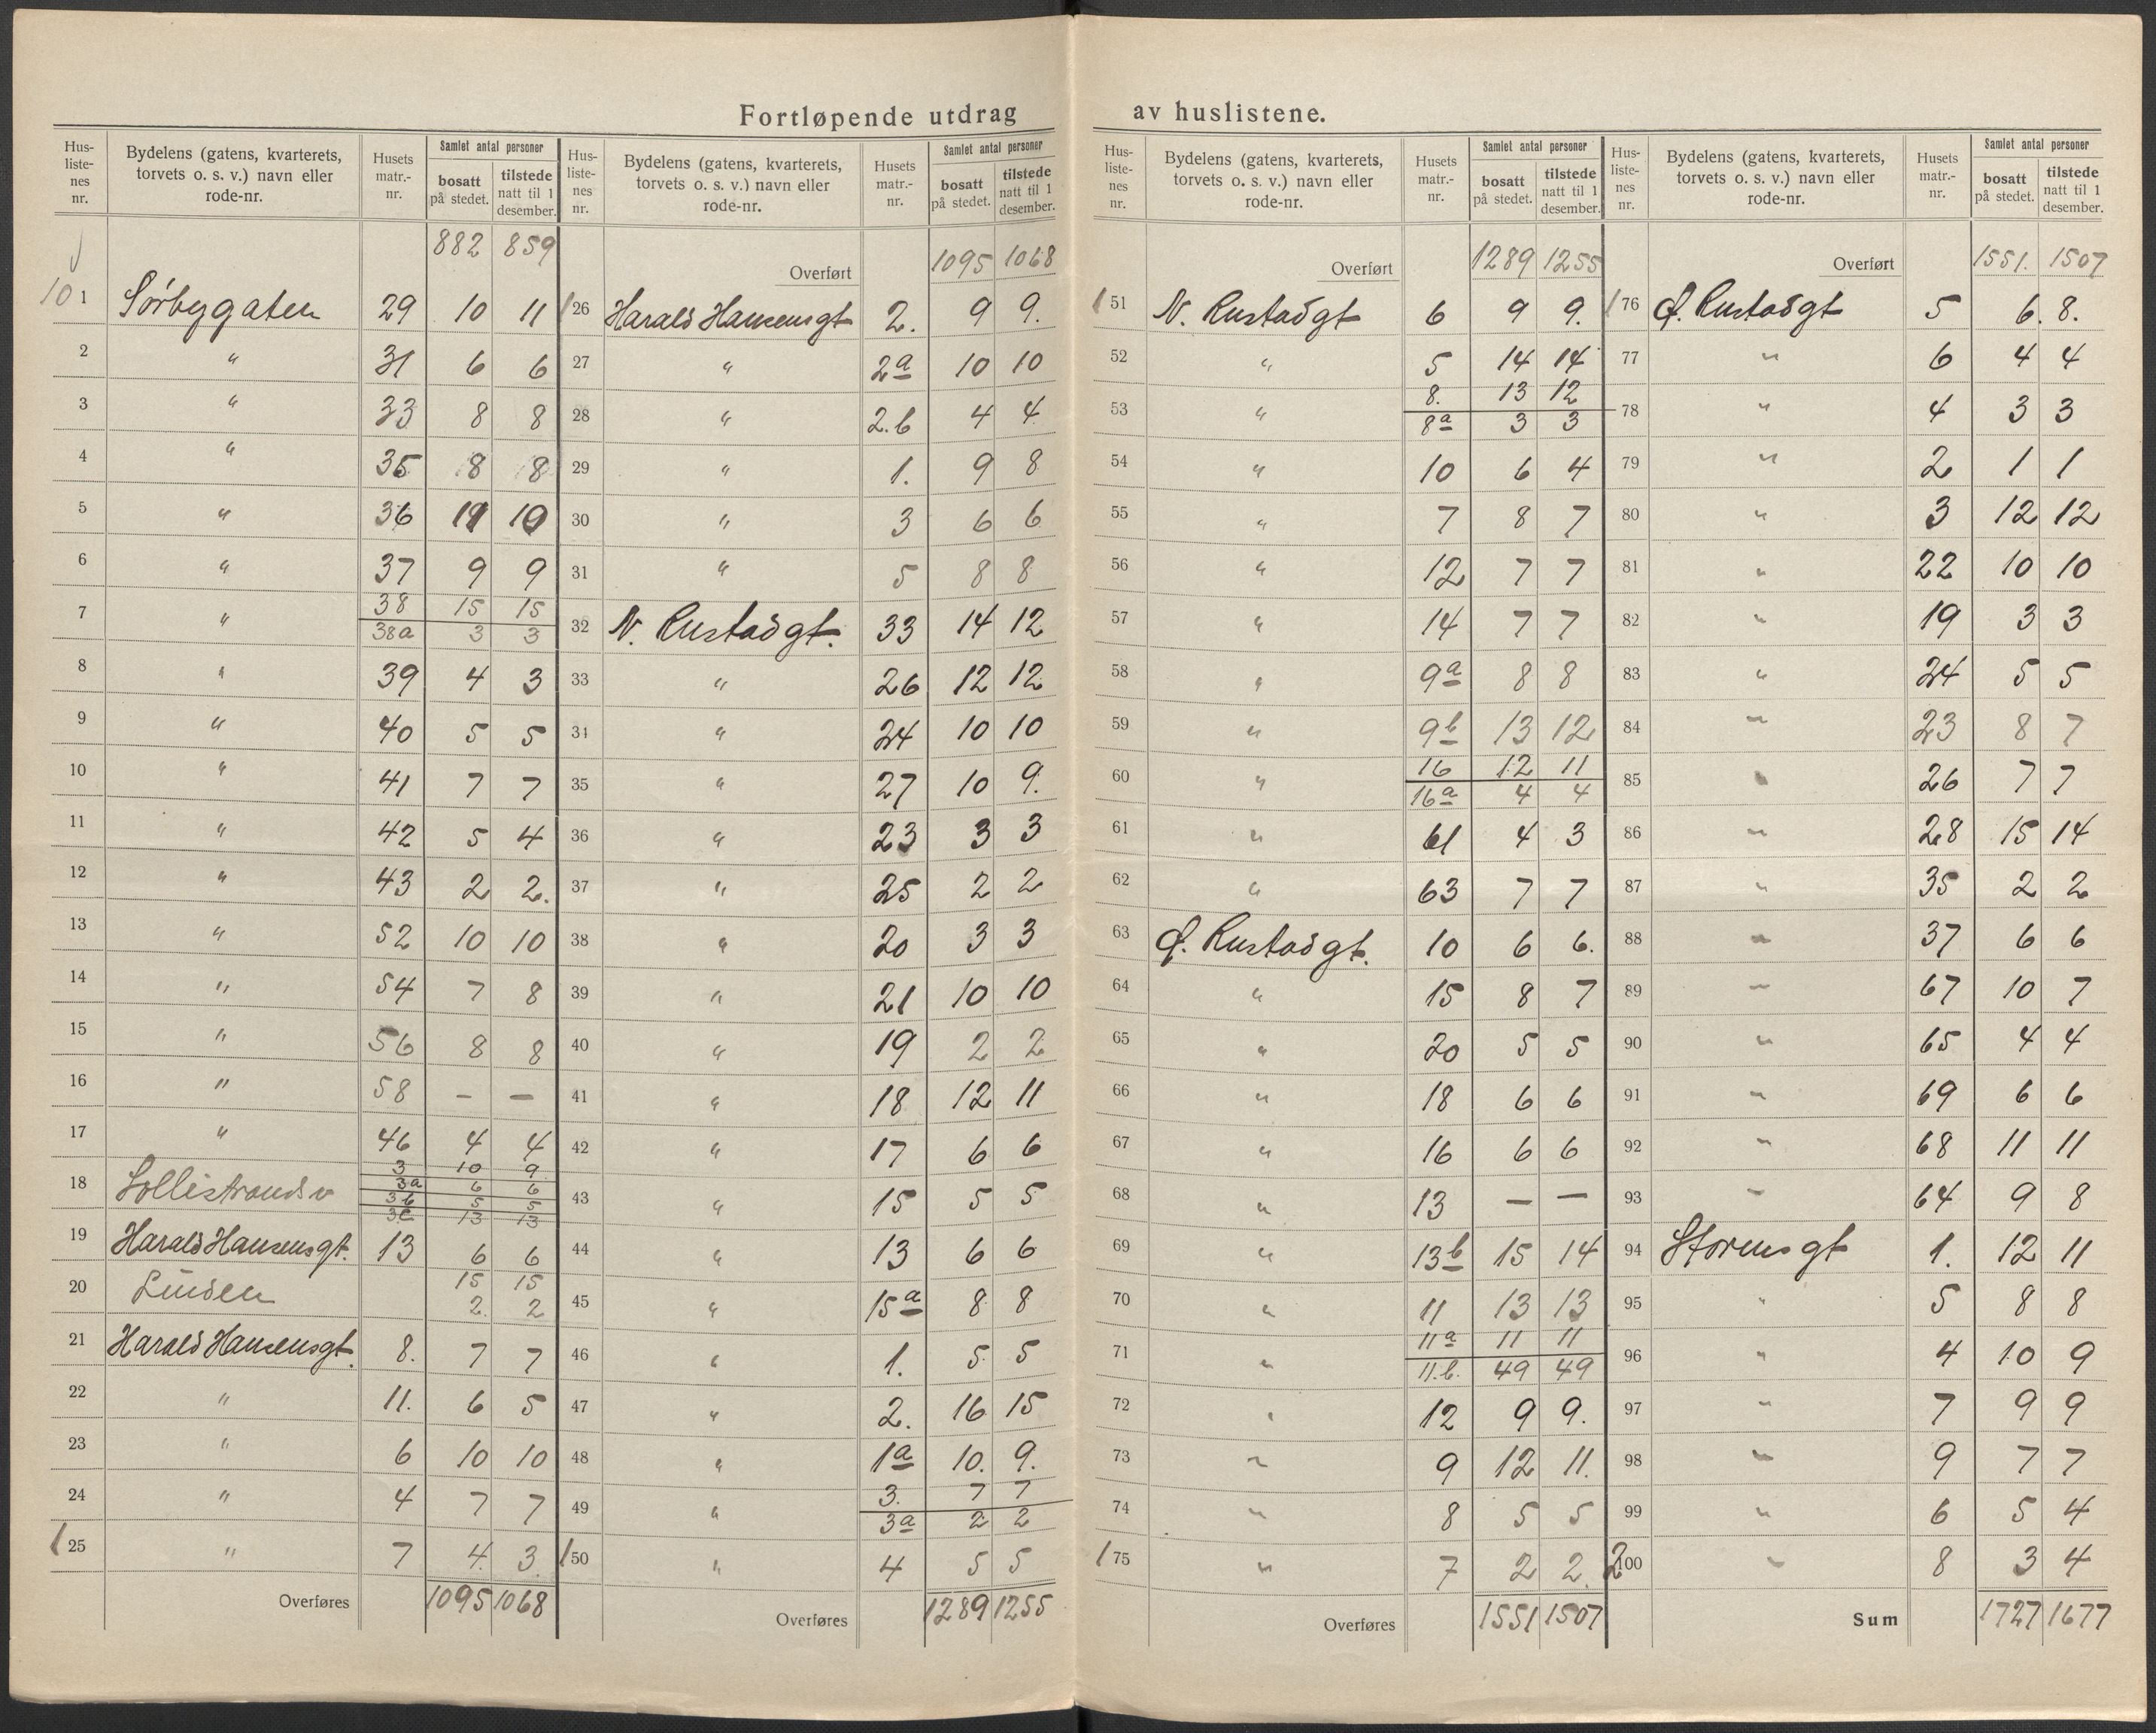 Fortløpende utdrag av huslistene.
Hus-liste-nes nr. | Bydelens (gatens, kvarterets, torvets o. s. v.) navn eller rode-nr. | Husets matr.-nr. | Samlet antal personer | bosatt på stedet. | tilstede natt til 1 desember.
882 859
101 Sørbygaten 29 10 11
2 " 31 6 6
3 " 33 8 8
4 " 35 8 8
5 " 36 19 19
6 " 37 9 9
7 " 38 15 15
38a 3 3
8 " 39 4 3
9 " 40 5 5
10 " 41 7 7
11 " 42 5 4
12 " 43 2 2.
13 " 52 10 10
14 " 54 7 8
15 " 56 8 8
16 " 58 — —
17 " 46 4 4
18 Sollistrandsv 3 10 9
3a 6 6
3b 5 5
3c 13 13
19 Harald Hansensgt. 13 6 6
20 Linden 15 15
2. 2
21 Harald Hansensgt. 8. 7 7
22 " 11. 6 5
23 " 6 10 10
24 " 4 7 7
125 " 7 4. 3.
Overføres 1095 1068
Hus-liste-nes nr. | Bydelens (gatens, kvarterets, torvets o. s. v.) navn eller rode-nr. | Husets matr.-nr. | Samlet antal personer | bosatt på stedet. | tilstede natt til 1 desember.
Overført 1095 1068
126 Harald Hansensgt 2. 9 9.
27 " 2a 10 10
28 " 2.b 4 4
29 " 1. 9 8
30 " 3 6 6
31 " 5 8 8
32 N. Rustadgt. 33 14 12
33 " 26 12 12
34 " 24 10 10
35 " 27 10 9.
36 " 23 3 3
37 " 25 2 2
38 " 20 3 3
39 " 21 10 10
40 " 19 2 2
41 " 18 12 11
42 " 17 6 6
43 " 15 5 5
44 " 13 6 6
45 " 15a 8 8
46 " 1. 5 5
47 " 2. 16 15
48 " 1a 10. 9.
49 " 3. 7 7
3a 2 2
150 " 4 5 5
Overføres 1289 1255
Hus-liste-nes nr. | Bydelens (gatens, kvarterets, torvets o. s. v.) navn eller rode-nr. | Husets matr.-nr. | Samlet antal personer | bosatt på stedet. | tilstede natt til 1 desember.
Overført 1289 1255
151 N. Rustadgt 6 9 9.
52 " 5 14 14
53 " 8. 13 12
8a 3 3
54 " 10 6 4
55 " 7 8 7
56 " 12 7 7
57 " 14 7 7
58 " 9a 8 8
59 " 9b 13 12
60 " 16 12 11
16a 4 4
61 " 61 4 3
62 " 63 7 7
63 Ø. Rustadgt. 10 6 6.
64 " 15 8 7
65 " 20 5 5
66 " 18 6 6
67 " 16 6 6
68 " 13 — —
69 " 13b 15 14
70 " 11 13 13
71 " 11a 11 11
11.b. 49 49
72 " 12 9 9.
73 " 9 12 11.
74 " 8 5 5
175 " 7 2 2.
Overføres 1551 1507
Hus-liste-nes nr. | Bydelens (gatens, kvarterets, torvets o. s. v.) navn eller rode-nr. | Husets matr.-nr. | Samlet antal personer | bosatt på stedet. | tilstede natt til 1 desember.
Overført 1551. 1507
176 Ø. Rustadgt 5 6. 8.
77 " 6 4 4
78 " 4 3 3
79 " 2 1 1
80 " 3 12 12
81 " 22 10 10
82 " 19 3 3
83 " 24 5 5
84 " 23 8 7
85 " 26 7 7
86 " 28 15 14
87 " 35 2 2
88 " 37 6 6
89 " 67 10 7
90 " 65 4 4
91 " 69 6 6
92 " 68 11 11
93 " 64 9 8
94 Storensgt 1. 12 11
95 " 5 8 8
96 " 4 10 9
97 " 7 9 9
98 " 9 7 7
99 " 6 5 4
2100 " 8 3 4
Sum 1727 1677